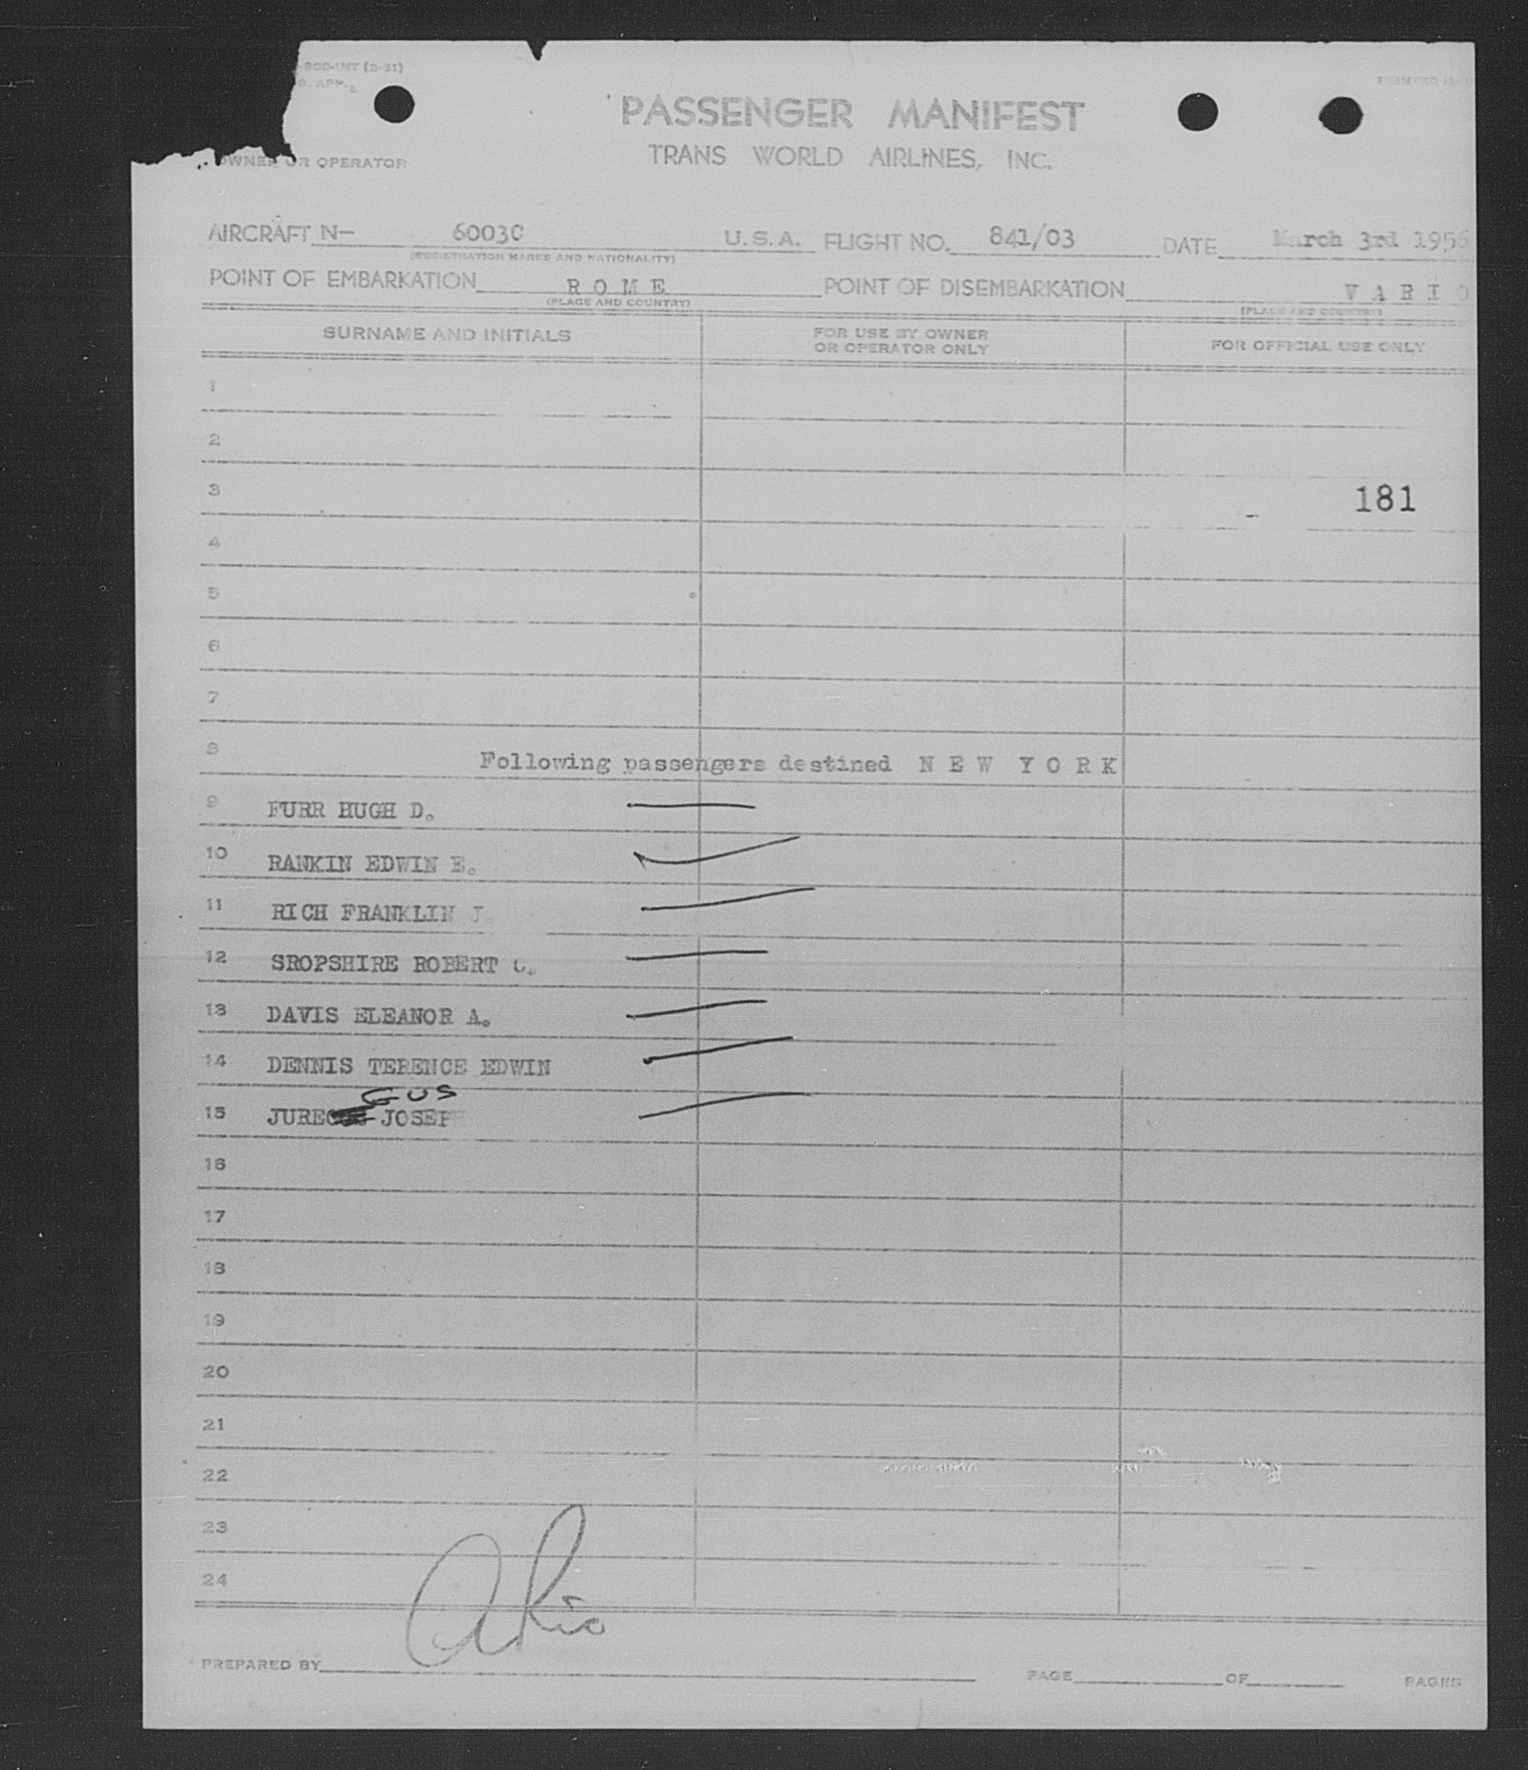 -800-INT (2-51)
PASSENGER MANIFEST
TRANS WORLD AIRLINES, INC.
OWNER OR OPERATOR
AIRCRAFT N- 6003C U.S.A. FLIGHT NO. 841/03 DATE March 3rd 1956
(REGISTRATION MARKS AND NATIONALITY)
POINT OF EMBARKATION R O M E POINT OF DISEMBARKATION V A R I O
(PLACE AND COUNTRY) (PLACE AND COUNTRY)
SURNAME AND INITIALS FOR USE BY OWNER OR OPERATOR ONLY FOR OFFICIAL USE ONLY
1
2
3 181
4
5
6
7
8 Following passengers destined N E W Y O R K
9 FURR HUGH D.
10 RANKIN EDWIN E.
11 RICH FRANKLIN J.
12 SROPSHIRE ROBERT C.
13 DAVIS ELEANOR A.
14 DENNIS TERENCE EDWIN
GUS
15 JUREC JOSEP
16
17
18
19
20
21
22
23
24
PREPARED BY PAGE OF PAGES